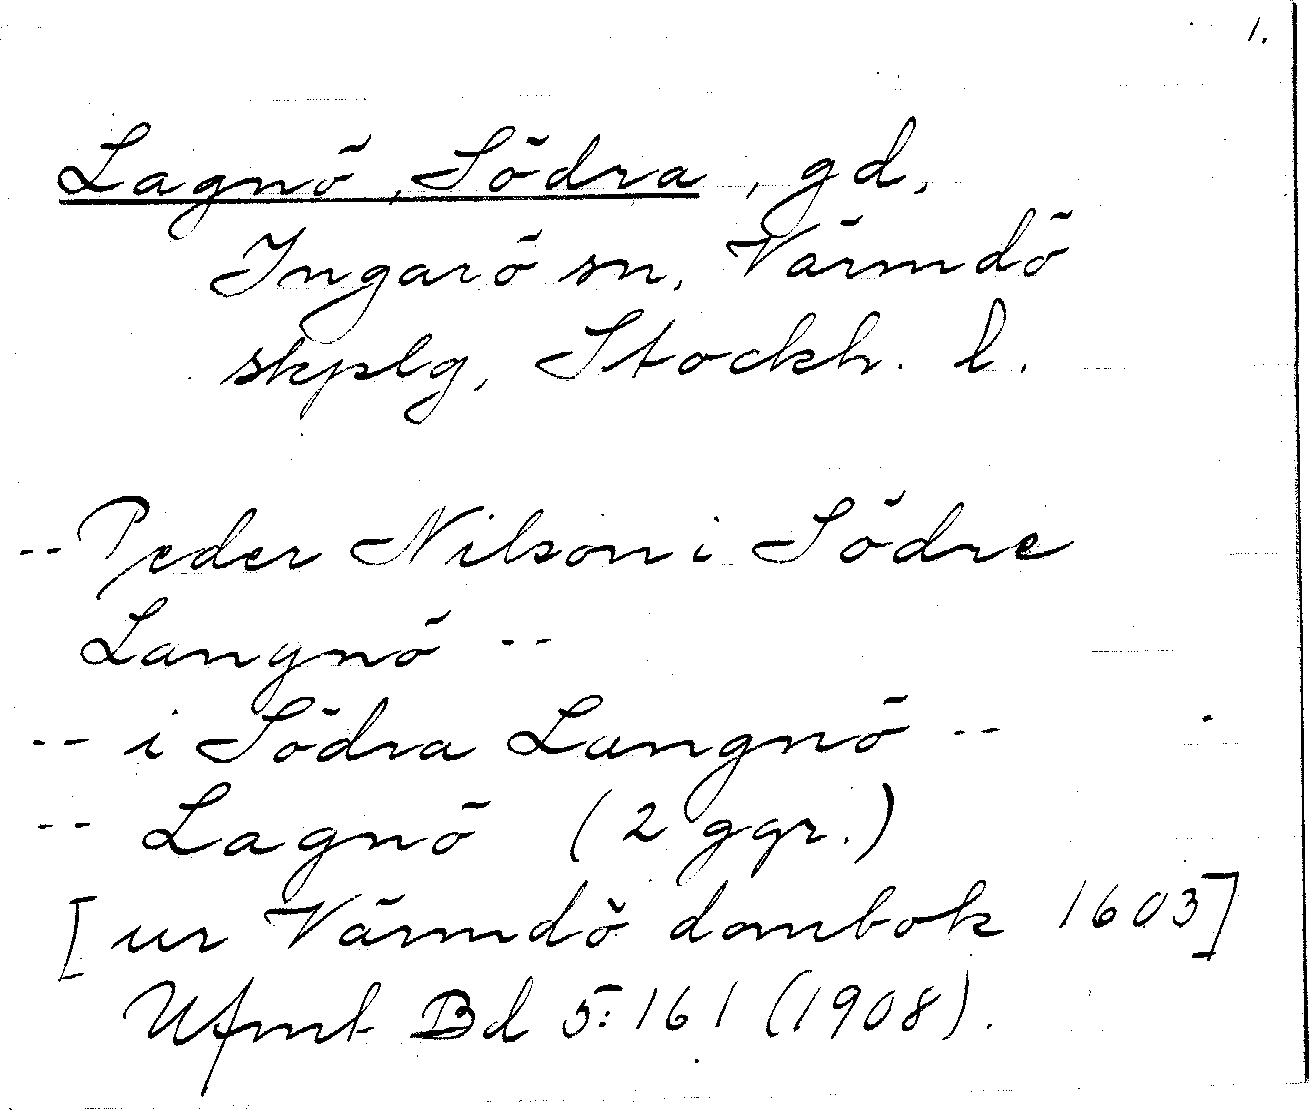 1.
Lagnö, Södra, gd,
Ingarö sn, Värmdö
skplg, Stockh. l.
-- Peder Nilson i Södre
Langnö --
-- i Södra Langnö --
-- Lagnö (2 ggr.)
[ur Värmdö dombok 1603]
Ufmt Bd 5:161 (1908).